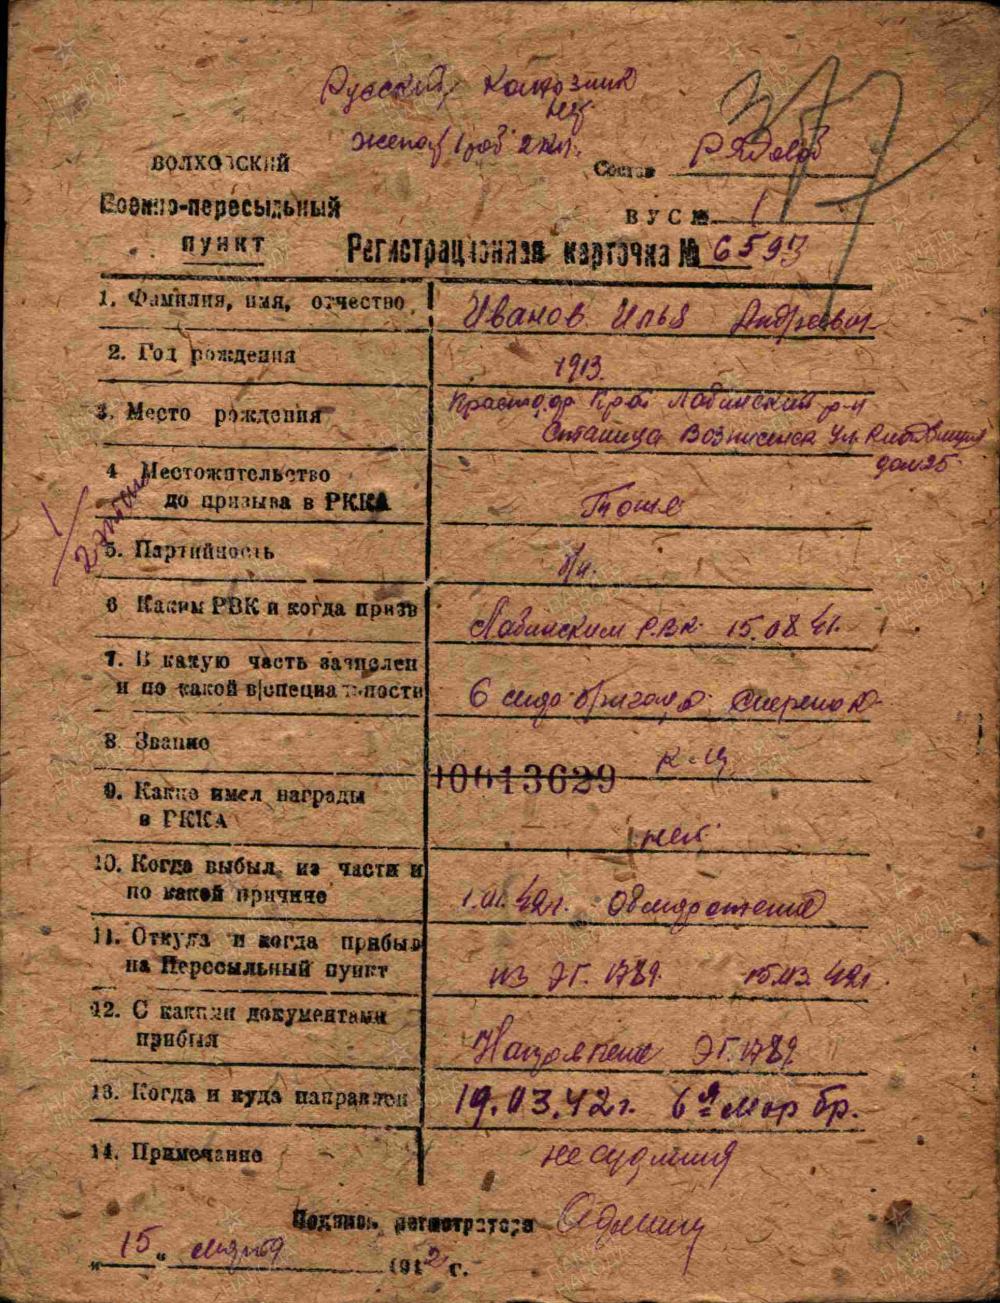 Русский колхозник
нет
женат 1 реб 2 кл.
377
ВОЛХОВСКИЙ
Состав рядовой
Военно-пересыльный
ВУС № 1
пункт
Регистрационная карточка № 6597
1. Фамилия, имя, отчество Иванов Илья Андреевич
2. Год рождения 1913.
3. Место рождения Краснодар край Лабинский р-н
Станица Вознесенск ул
дом 25
4 Местожительство
до призыва в РККА Тоже
5. Партийность б/п.
6 Каким РВК и когда призв Лабинским Р.В.К. 15.08.41.
7. В какую часть зачислен
и по какой в/специальности 6 бригада
8. Звание к-ц
00013629
9. Какие имел награды
в РККА нет
10. Когда выбыл из части и
по какой причине 1.01.42г. Обморожение
11. Откуда и когда прибыл
на Пересыльный пункт из ЭГ. 1782 15.03.42г
12. С какими документами
прибыл ЭГ. 1782
13. Когда и куда направлен 19.03.42г. 6я мор бр.
14. Примечание не судимый
Подпись регистратора
„ 15 “ марта 1942 г.